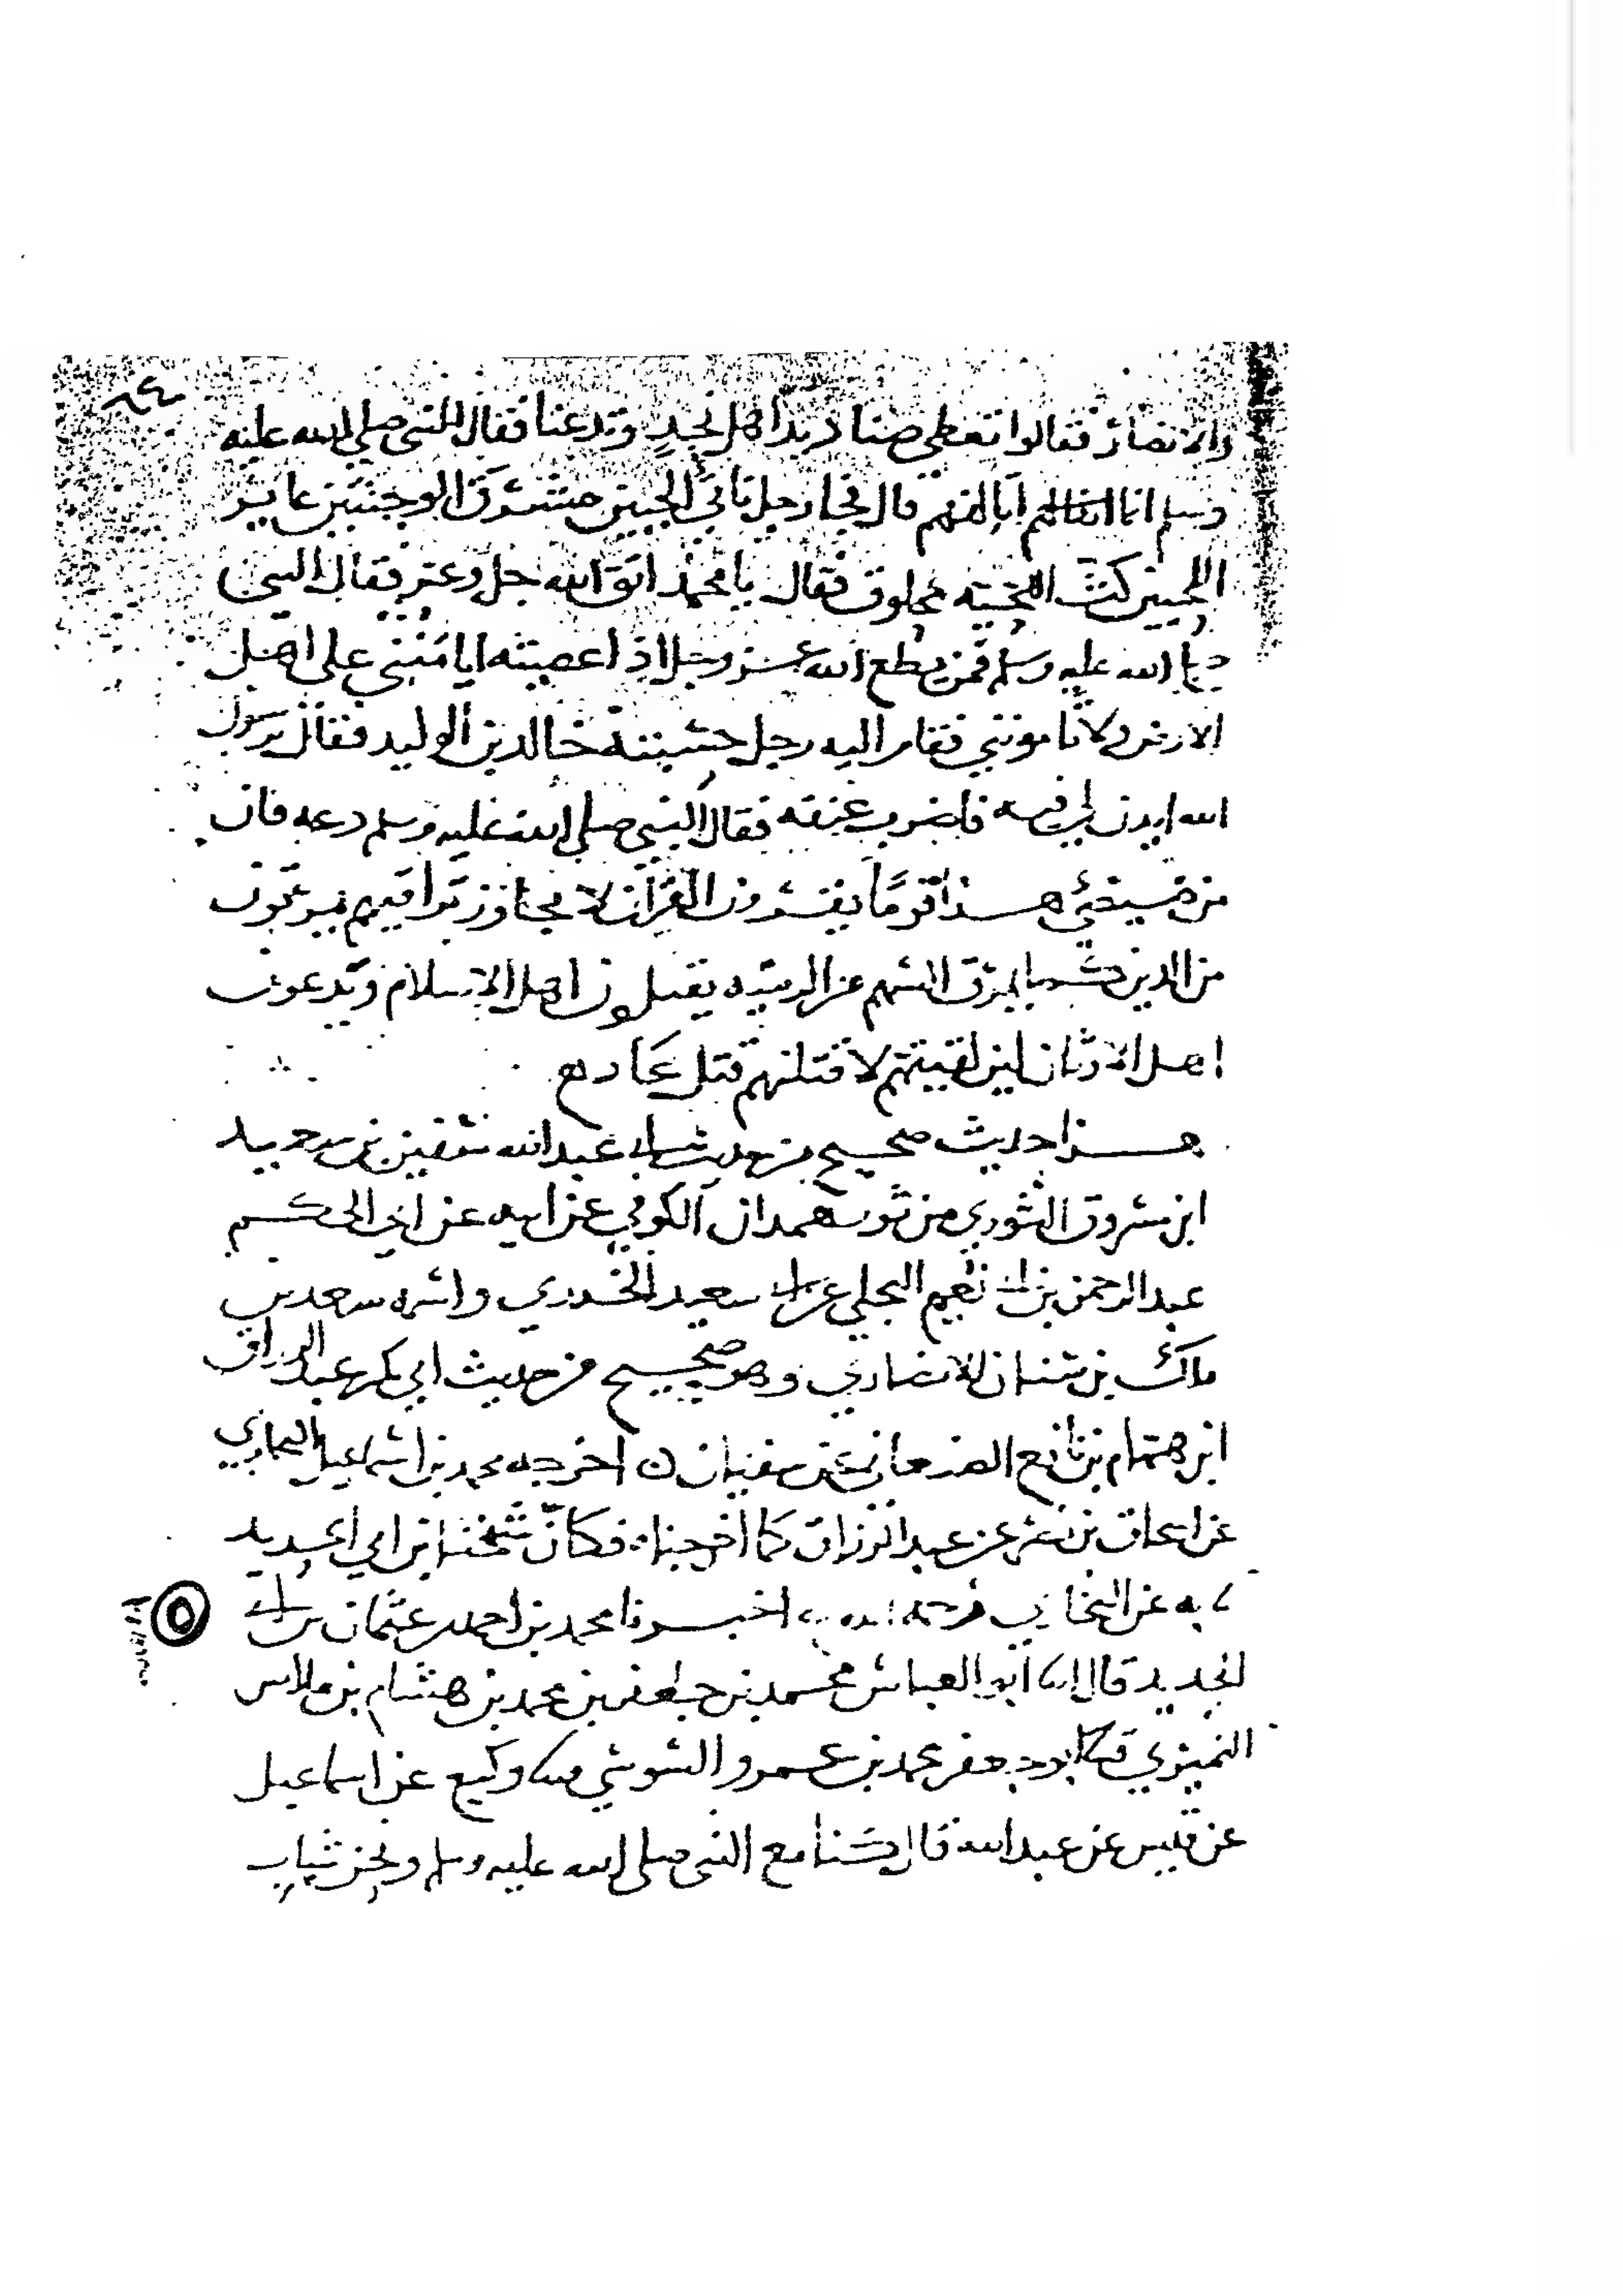 والانصار فقالوا تعطي صناديد اهل نجد وتدعنا فقال النبي صلي الله عليه
وسلم انا اتالفهم قال فجا رجل ناتئ الجبين مشرق الوجنتين غاير
العينين كث اللحيه محلوق فقال يا محمد اتق الله جل وعز فقال النبي
صلى الله عليه وسلم فمن يطع الله عز وجل اذا عصيته ايامنني على اهل
الارض ولا تامونني فقام اليه رجل حسبته خالد بن الوليد فقال يرسول
الله ايذن لي فيه فاضرب عنقه فقال النبي صلي الله عليه وسلم دعه فان
من ضيضئ هذا قوما يقرون القران لا يجاوز تراقيهم يمرقون
من الدين كما يمرق السهم من الرميه يقتلون اهل الاسلام ويدعون
اهل الاوثان لين لقيتهم لاقتلنهم قتل عاد
هذا حديث صحيح من حديث ابي عبد الله سفين بن سعيد
ابن مسروق الثوري من ثور همدان الكوفي عن ابيه عن ابي الحكم
عبد الرحمن بن ابي نعيم البجلي عن ابي سعيد الخدري واسمه سعد بن
مالك بن سنان الانصاري وهو صحيح من حديث ابي بكر عبد الرزاق
ابن همام بن نافع الصنعاني عن سفيان اخرجه محمد بن اسماعيل البخاري
عن اسحاق بن نصر عن عبد الرزاق كما اخرجناه فكان شيخنا ابن ابي الحديد
به عن البخاري اخبرنا محمد بن احمد بن عثمان بن ابي
الحديد قال ابنا ابو العباس محمد بن جعفر بن محمد بن هشام بن ملاس
النميري ابو جعفر محمد بن عمرو السوسي وكيع عن اسماعيل
عن قيس عن عبد الله قال كنا مع النبي صلى الله عليه وسلم ونحن شباب